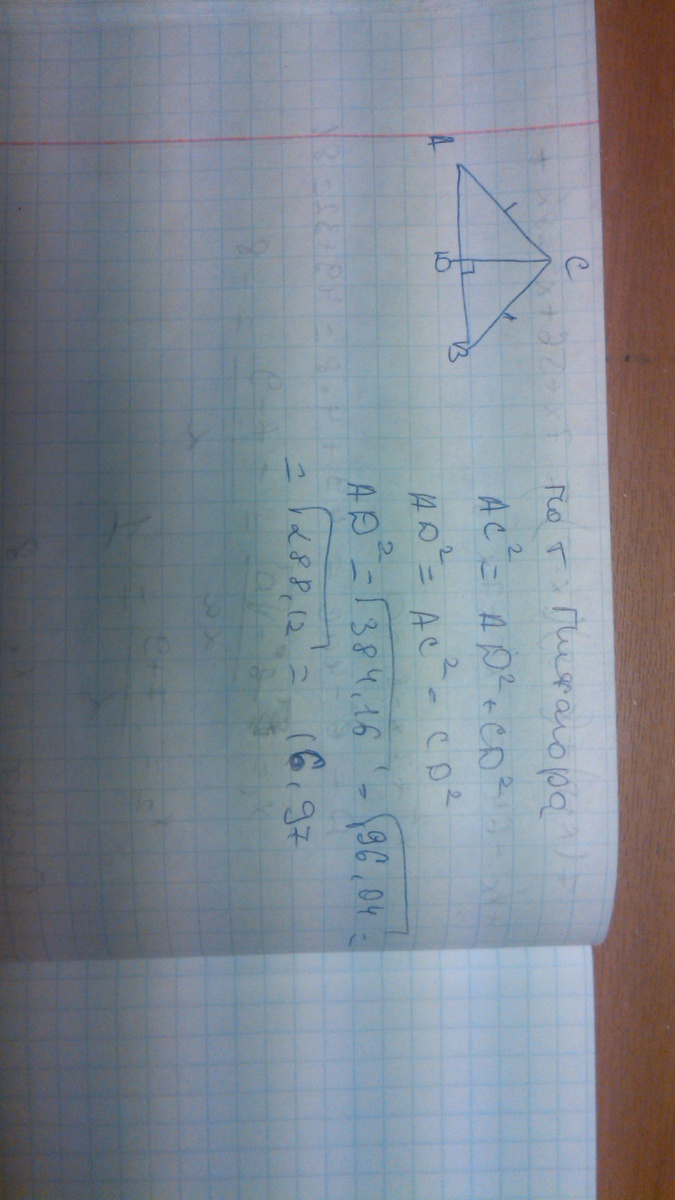 C
A
D
B
По т. Пифагора
AC² = AD² + CD²
AD² = AC² - CD²
AD² = √384,16 - √96,04 =
= √288,12 = 16,97